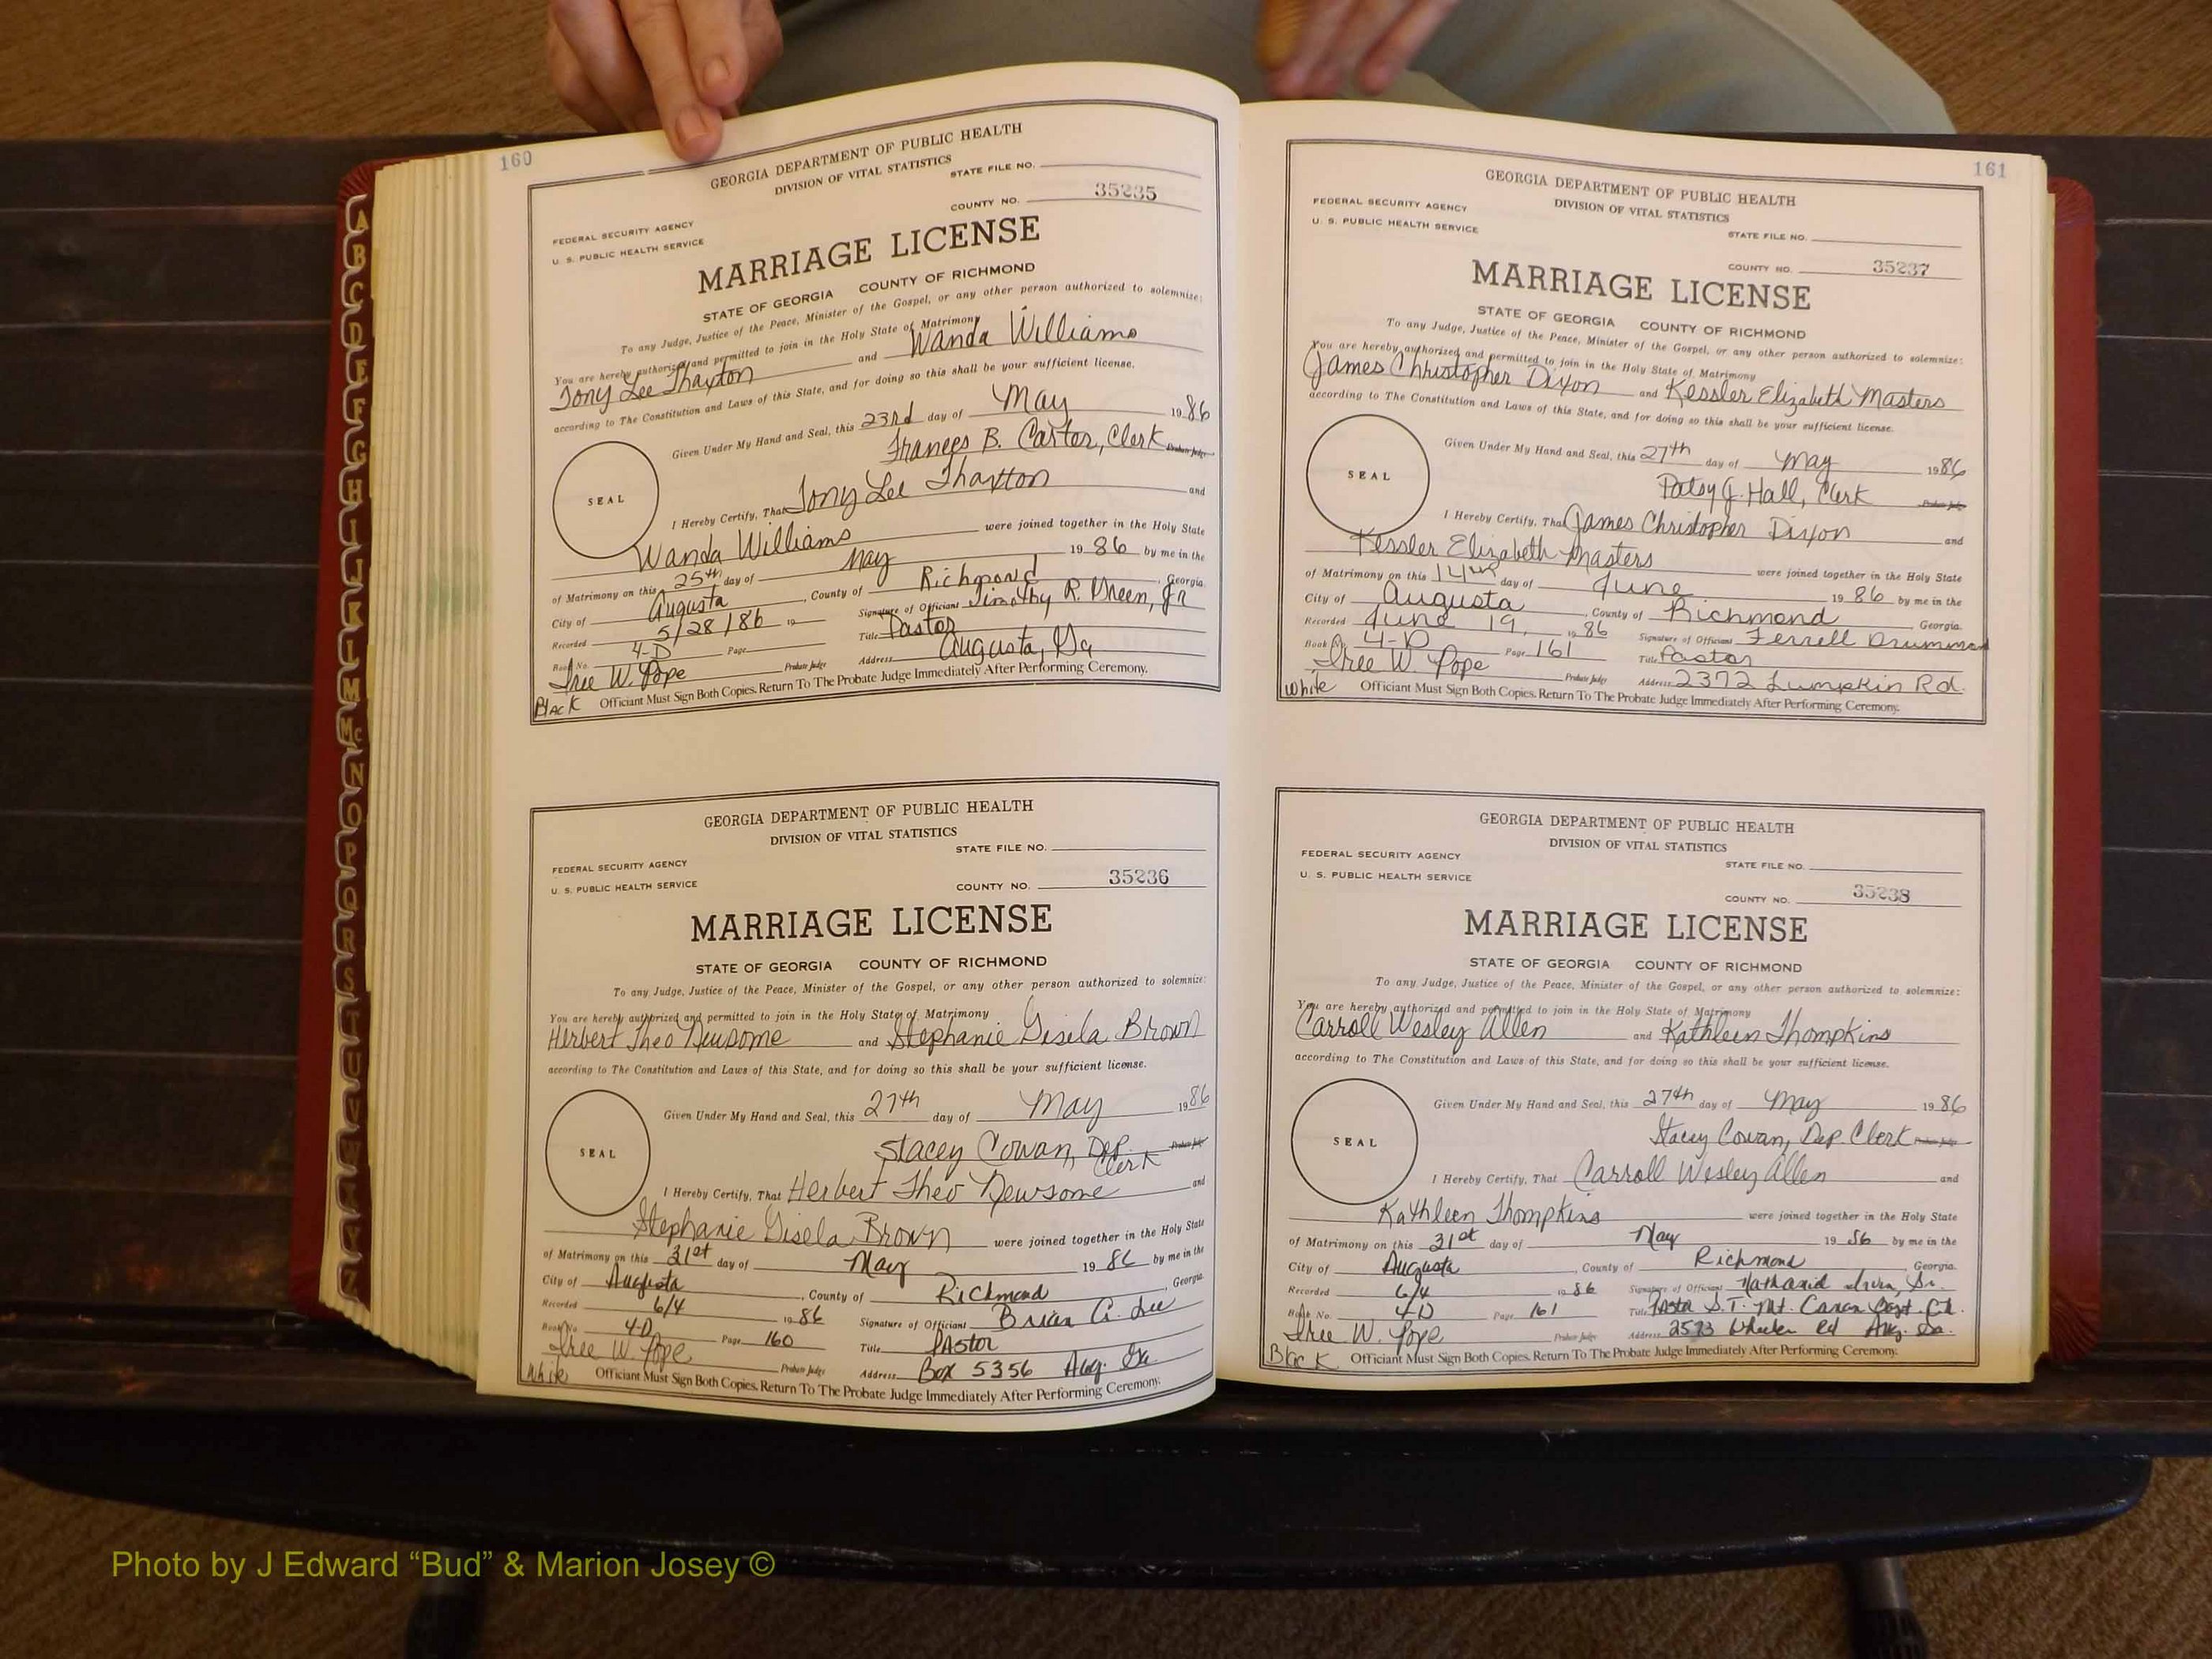 160
GEORGIA DEPARTMENT OF PUBLIC HEALTH
DIVISION OF VITAL STATISTICS
STATE FILE NO.
FEDERAL SECURITY AGENCY
U. S. PUBLIC HEALTH SERVICE
COUNTY NO. 35235
MARRIAGE LICENSE
STATE OF GEORGIA COUNTY OF RICHMOND
To any Judge, Justice of the Peace, Minister of the Gospel, or any other person authorized to solemnize:
You are hereby authorized and permitted to join in the Holy State of Matrimony
Tony Lee Thaxton and Wanda Williams
according to The Constitution and Laws of this State, and for doing so this shall be your sufficient license.
Given Under My Hand and Seal, this 23rd day of May 1986
Frances B. Carter, Clerk Probate Judge
SEAL
I Hereby Certify, That Tony Lee Thaxton and
Wanda Williams were joined together in the Holy State
of Matrimony on this 25th day of May 1986 by me in the
City of Augusta, County of Richmond, Georgia.
Recorded 5/28/86 19 Signature of Officiant Timothy R. Green, Jr
Book No. 4-D Page Title Pastor
Iree W. Pope Probate Judge Address Augusta, Ga
Black Officiant Must Sign Both Copies. Return To The Probate Judge Immediately After Performing Ceremony.
GEORGIA DEPARTMENT OF PUBLIC HEALTH
DIVISION OF VITAL STATISTICS
STATE FILE NO.
FEDERAL SECURITY AGENCY
U. S. PUBLIC HEALTH SERVICE
COUNTY NO. 35236
MARRIAGE LICENSE
STATE OF GEORGIA COUNTY OF RICHMOND
To any Judge, Justice of the Peace, Minister of the Gospel, or any other person authorized to solemnize:
You are hereby authorized and permitted to join in the Holy State of Matrimony
Herbert Theo Newsome and Stephanie Gisela Brown
according to The Constitution and Laws of this State, and for doing so this shall be your sufficient license.
Given Under My Hand and Seal, this 27th day of May 1986
Stacey Cowan, Dep. Clerk Probate Judge
SEAL
I Hereby Certify, That Herbert Theo Newsome and
Stephanie Gisela Brown were joined together in the Holy State
of Matrimony on this 31st day of May 1986 by me in the
City of Augusta, County of Richmond, Georgia.
Recorded 6/4 1986 Signature of Officiant Brian G. Lee
Book No. 4-D Page 160 Title Pastor
Iree W. Pope Probate Judge Address Box 5356 Aug. Ga.
White Officiant Must Sign Both Copies. Return To The Probate Judge Immediately After Performing Ceremony.
161
GEORGIA DEPARTMENT OF PUBLIC HEALTH
DIVISION OF VITAL STATISTICS
FEDERAL SECURITY AGENCY
U. S. PUBLIC HEALTH SERVICE
STATE FILE NO.
COUNTY NO. 35237
MARRIAGE LICENSE
STATE OF GEORGIA COUNTY OF RICHMOND
To any Judge, Justice of the Peace, Minister of the Gospel, or any other person authorized to solemnize:
You are hereby authorized and permitted to join in the Holy State of Matrimony
James Christopher Dixon and Kessler Elizabeth Masters
according to The Constitution and Laws of this State, and for doing so this shall be your sufficient license.
Given Under My Hand and Seal, this 27th day of May 1986
Patsy J. Hall, Clerk Probate Judge
SEAL
I Hereby Certify, That James Christopher Dixon and
Kessler Elizabeth Masters were joined together in the Holy State
of Matrimony on this 14th day of June 1986 by me in the
City of Augusta, County of Richmond, Georgia.
Recorded June 19, 1986 Signature of Officiant Ferrell Drummond
Book No. 4-D Page 161 Title Pastor
Iree W. Pope Probate Judge Address 2372 Lumpkin Rd.
White Officiant Must Sign Both Copies. Return To The Probate Judge Immediately After Performing Ceremony.
GEORGIA DEPARTMENT OF PUBLIC HEALTH
DIVISION OF VITAL STATISTICS
FEDERAL SECURITY AGENCY
STATE FILE NO.
U. S. PUBLIC HEALTH SERVICE
COUNTY NO. 35238
MARRIAGE LICENSE
STATE OF GEORGIA COUNTY OF RICHMOND
To any Judge, Justice of the Peace, Minister of the Gospel, or any other person authorized to solemnize:
You are hereby authorized and permitted to join in the Holy State of Matrimony
Carroll Wesley Allen and Kathleen Thompkins
according to The Constitution and Laws of this State, and for doing so this shall be your sufficient license.
Given Under My Hand and Seal, this 27th day of May 1986
Stacey Cowan, Dep. Clerk Probate Judge
SEAL
I Hereby Certify, That Carroll Wesley Allen and
Kathleen Thompkins were joined together in the Holy State
of Matrimony on this 31st day of May 1986 by me in the
City of Augusta, County of Richmond Georgia.
Recorded 6/4 1986 Signature of Officiant Nathaniel Irvin, Sr.
Book No. 4-D Page 161 Title Pastor S.T. Mt. Canan Bapt. Ch.
Iree W. Pope Probate Judge Address 2573 Wheeler Rd Aug. Ga.
Black Officiant Must Sign Both Copies. Return To The Probate Judge Immediately After Performing Ceremony.
A
B
C
D
E
F
G
H
I
J
K
L
M
Mc
N
O
P
Q
R
S
T
U
V
W
X
Y
Z
Photo by J Edward “Bud” & Marion Josey ©